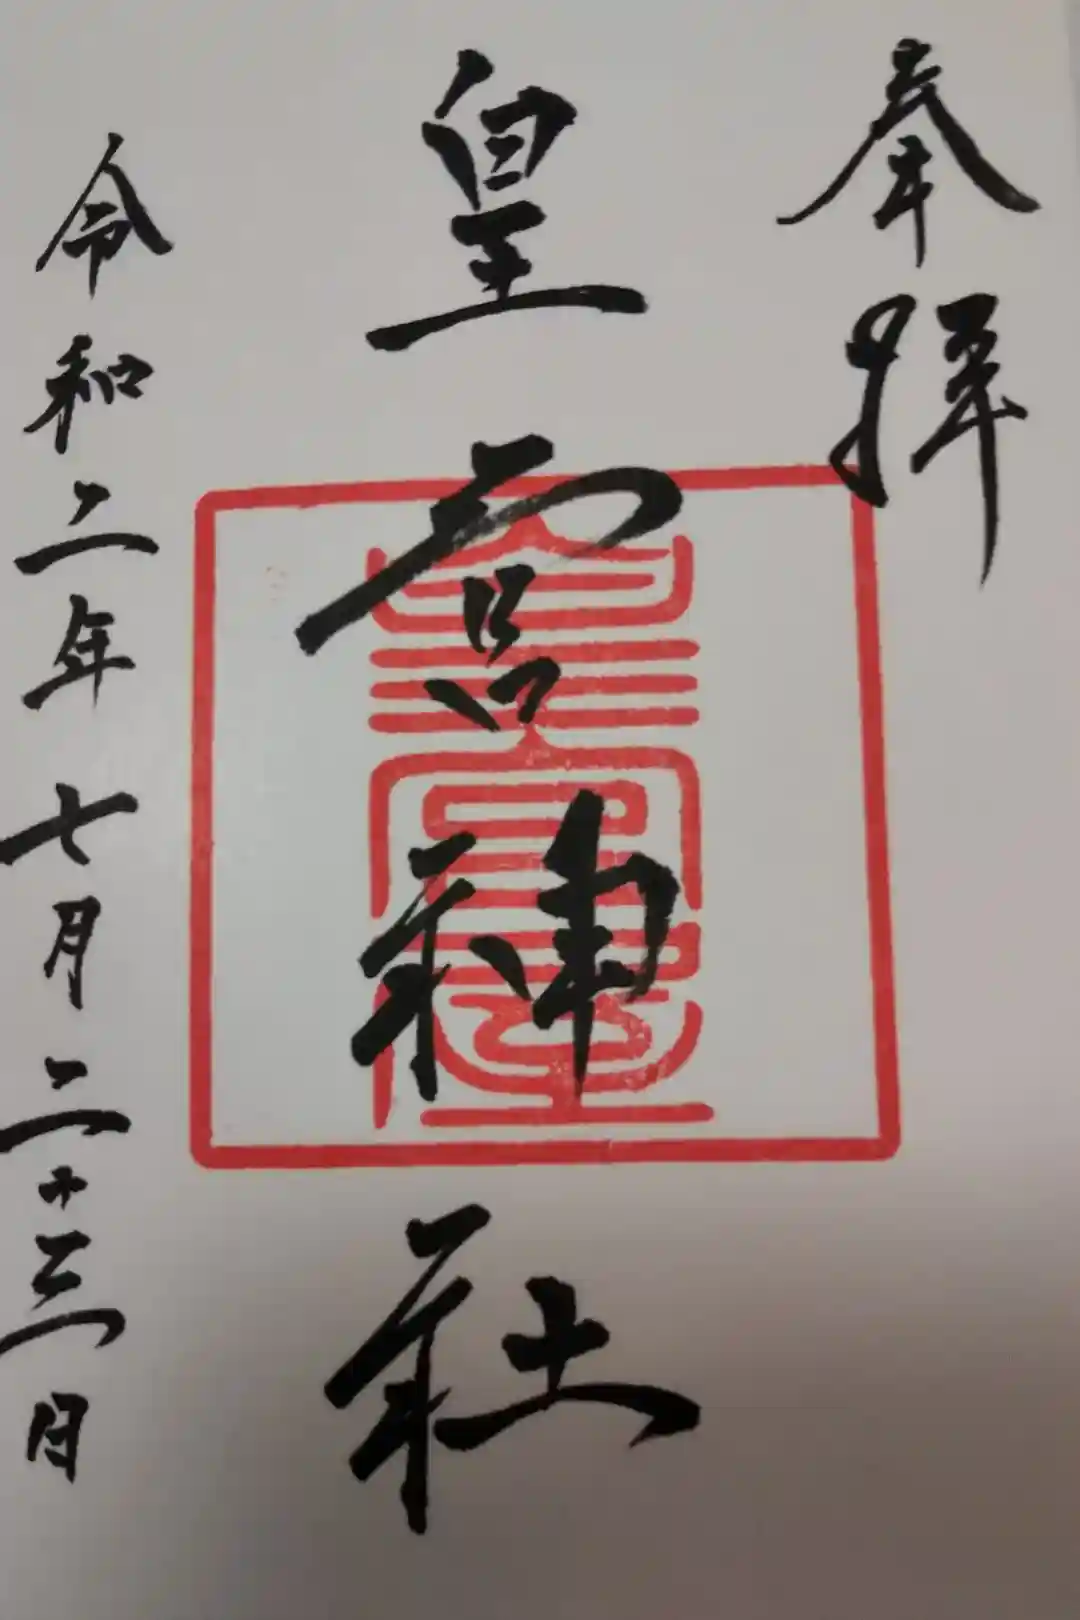 奉拝
皇宮神社
令和二年七月二十三日